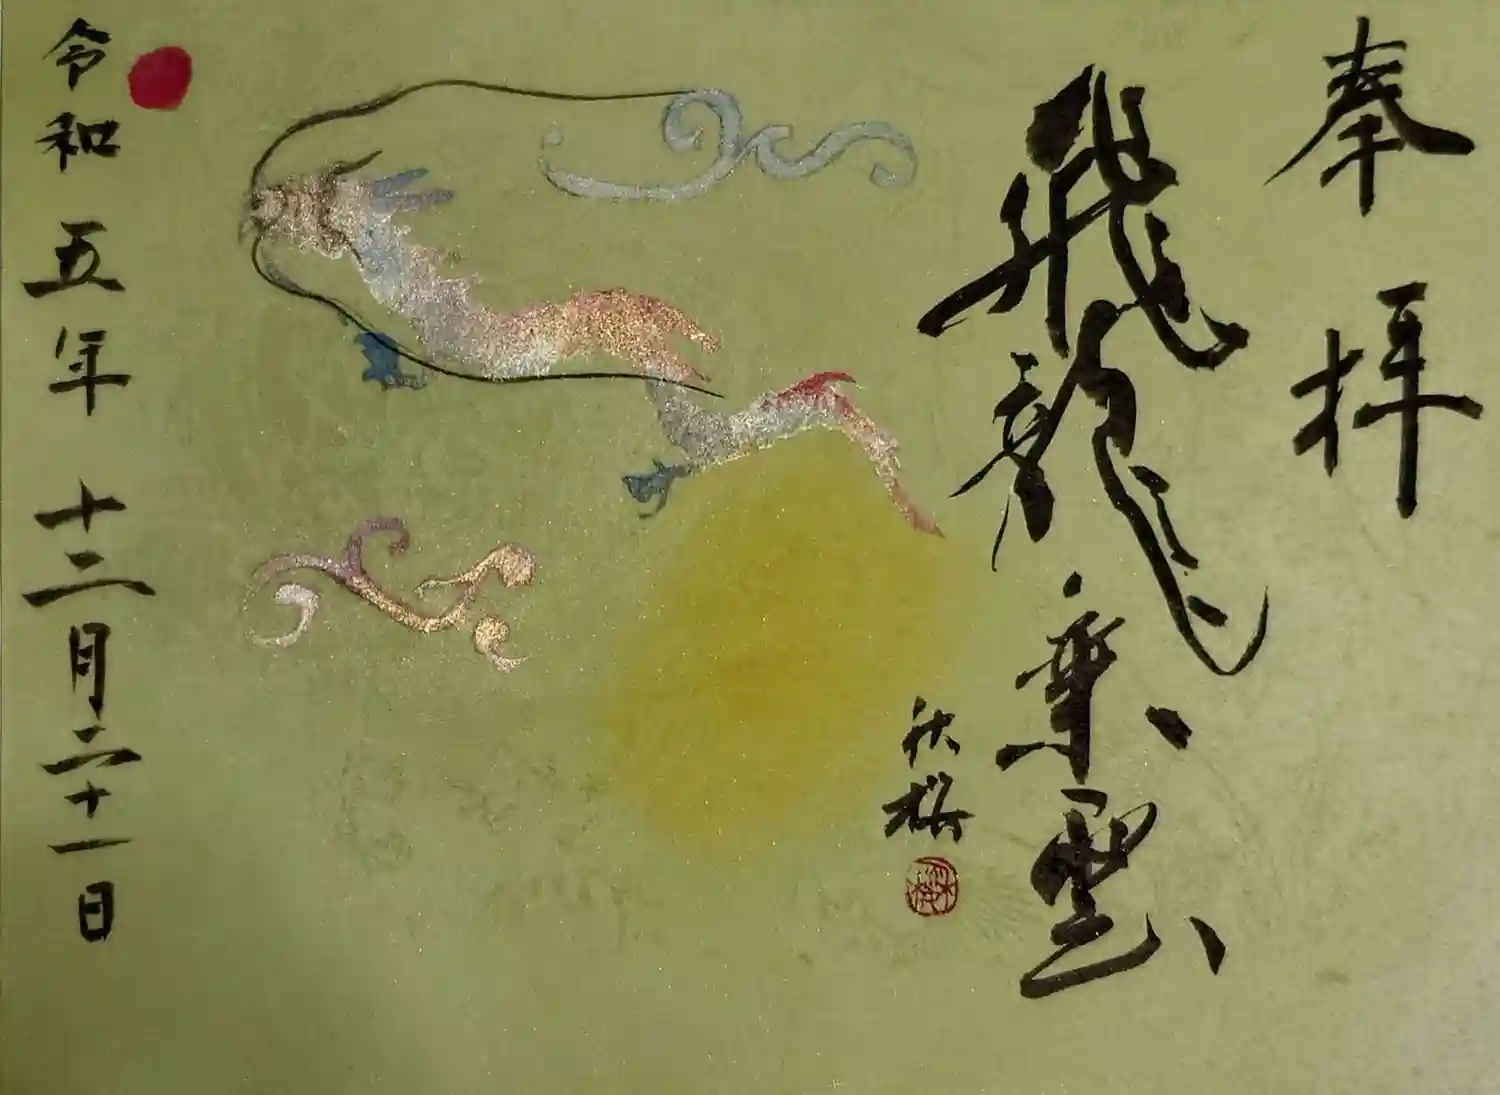 奉拝
飛龍乗雲
秋桜
令和五年十二月二十一日